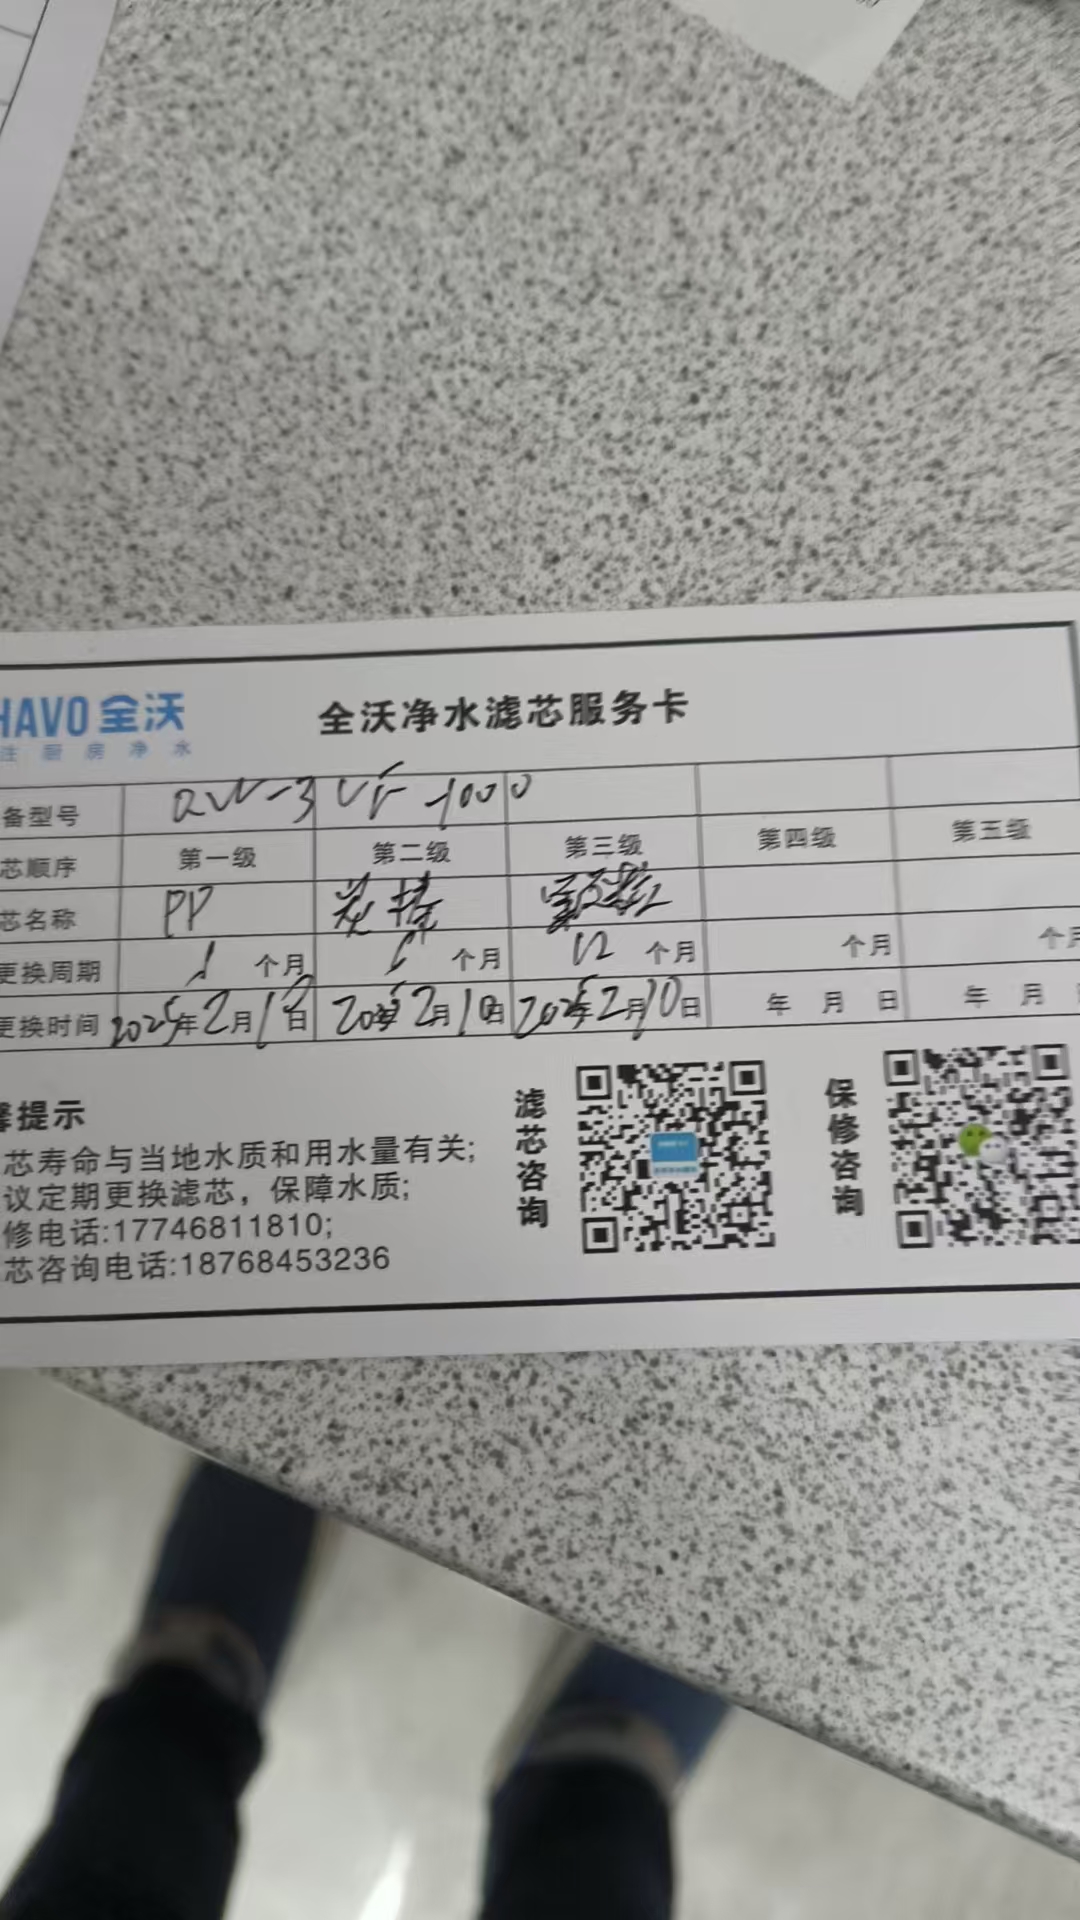 HAVO 全沃
注 厨 房 净 水
全沃净水滤芯服务卡
备型号 QW-3 UF-1000
芯顺序 第一级 第二级 第三级 第四级 第五级
芯名称 PP 炭棒
更换周期 个月 6个月 12个月 个月 个月
更换时间 2025年2月10日 2025年2月10日 2025年2月10日 年 月 日 年 月
馨提示
芯寿命与当地水质和用水量有关;
议定期更换滤芯，保障水质;
修电话:17746811810;
芯咨询电话:18768453236
滤芯咨询
保修咨询